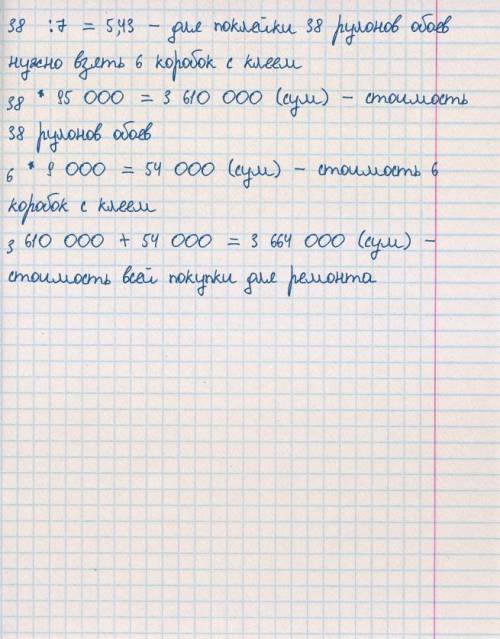 38 : 7 = 5,43 – для поклейки 38 рулонов обоев
нужно взять 6 коробок с клеем
38 * 95 000 = 3 610 000 (сум) – стоимость
38 рулонов обоев
6 * 9 000 = 54 000 (сум) – стоимость 6
коробок с клеем
3 610 000 + 54 000 = 3 664 000 (сум) –
стоимость всей покупки для ремонта